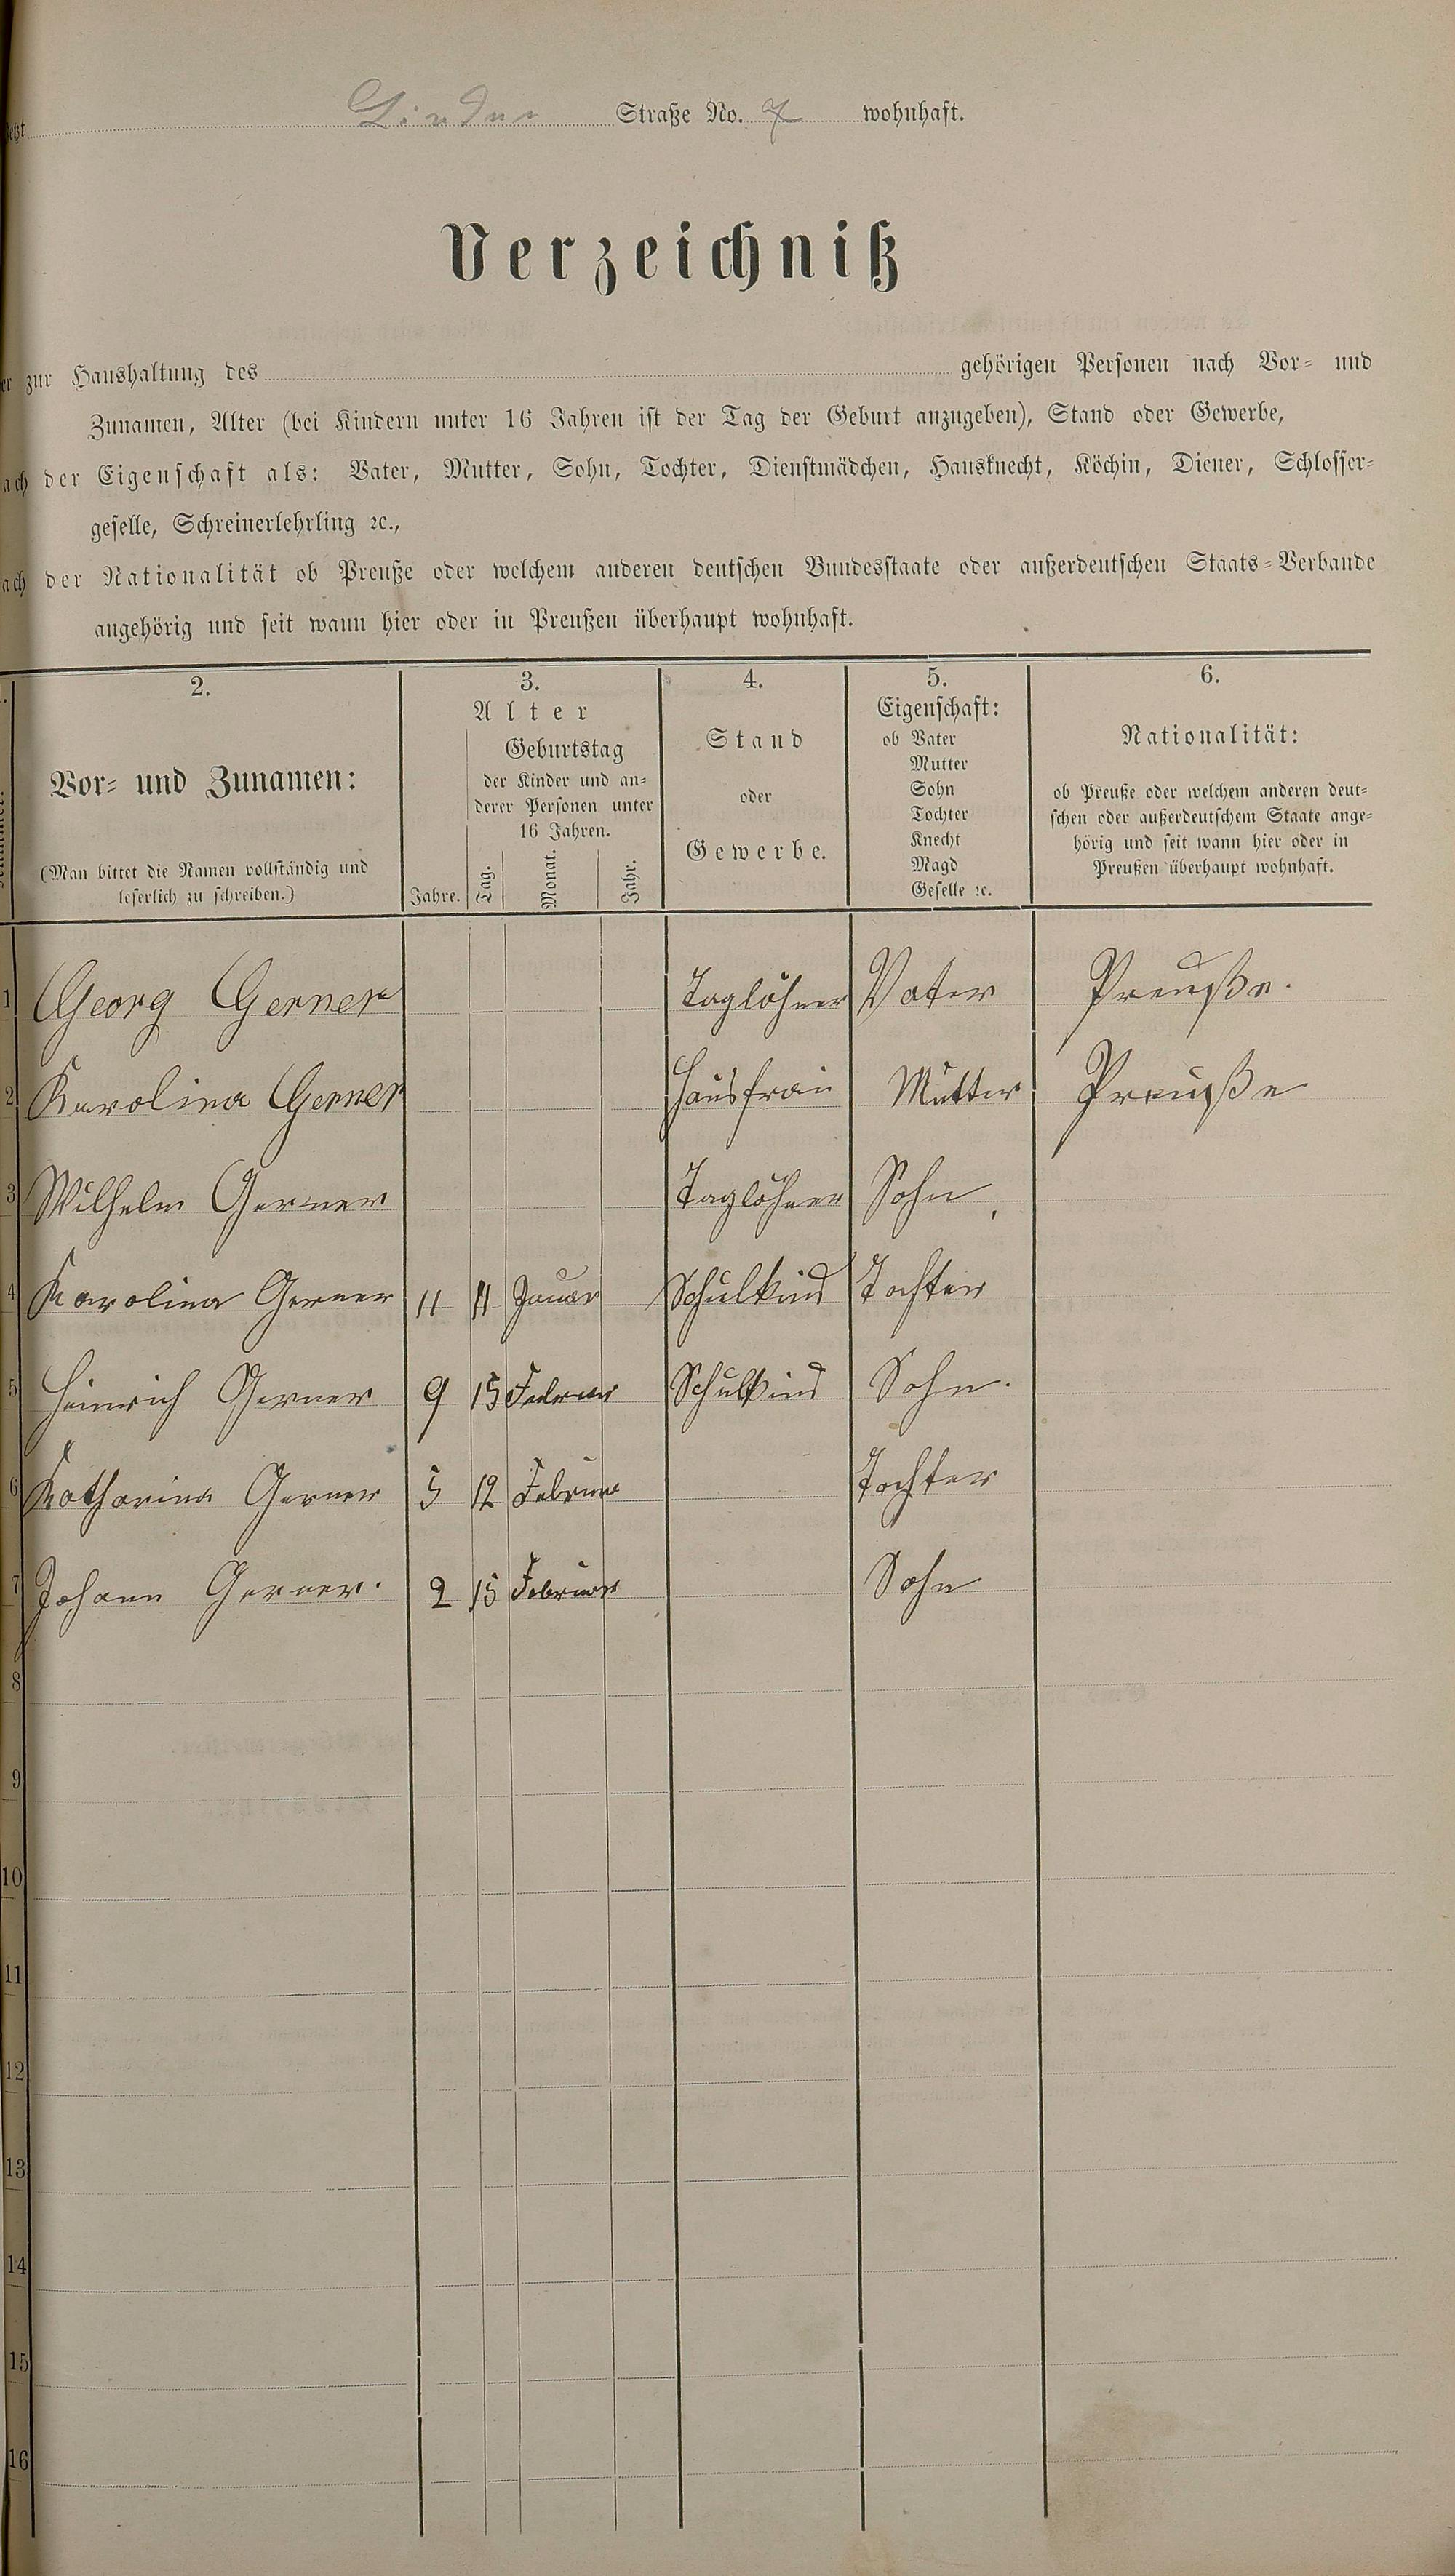 Linden Straße No. 7 wohnhaft.
Verzeichniß
zur Haushaltung des gehörigen Personen nach Vor- und
Zunamen, Alter (bei Kindern unter 16 Jahren ist der Tag der Geburt anzugeben), Stand oder Gewerbe,
der Eigenschaft als: Vater, Mutter, Sohn, Tochter, Dienstmädchen, Hausknecht, Köchin, Diener, Schlosser-
geselle, Schreinerlehrling ꝛc.,
der Nationalität ob Preuße oder welchem anderen deutschen Bundesstaate oder außerdeutschen Staats-Verbande
angehörig und seit wann hier oder in Preußen überhaupt wohnhaft.
2. 3. 4. 5. 6.
Vor- und Zunamen:
(Man bittet die Namen vollständig und
leserlich zu schreiben.)
Alter
Geburtstag
der Kinder und an-
derer Personen unter
16 Jahren.
Jahre. Tag. Monat. Jahr.
Stand
oder
Gewerbe.
Eigenschaft:
ob Vater
Mutter
Sohn
Tochter
Knecht
Magd
Geselle ꝛc.
Nationalität:
ob Preuße oder welchem anderen deut-
schen oder außerdeutschem Staate ange-
hörig und seit wann hier oder in
Preußen überhaupt wohnhaft.
1 Georg Gerner Taglöhner Vater Preuße.
2 Karolina Gerner Hausfrau Mutter Preuße
3 Wilhelm Gerner Taglöhner Sohn
4 Karolina Gerner 11 11 Januar Schulkind Tochter
5 Heinrich Gerner 9 15 Februar Schulkind Sohn.
6 Katharina Gerner 5 12 Februar Tochter
7 Johann Gerner. 2 15 Februar Sohn
8
9
10
11
12
13
14
15
16